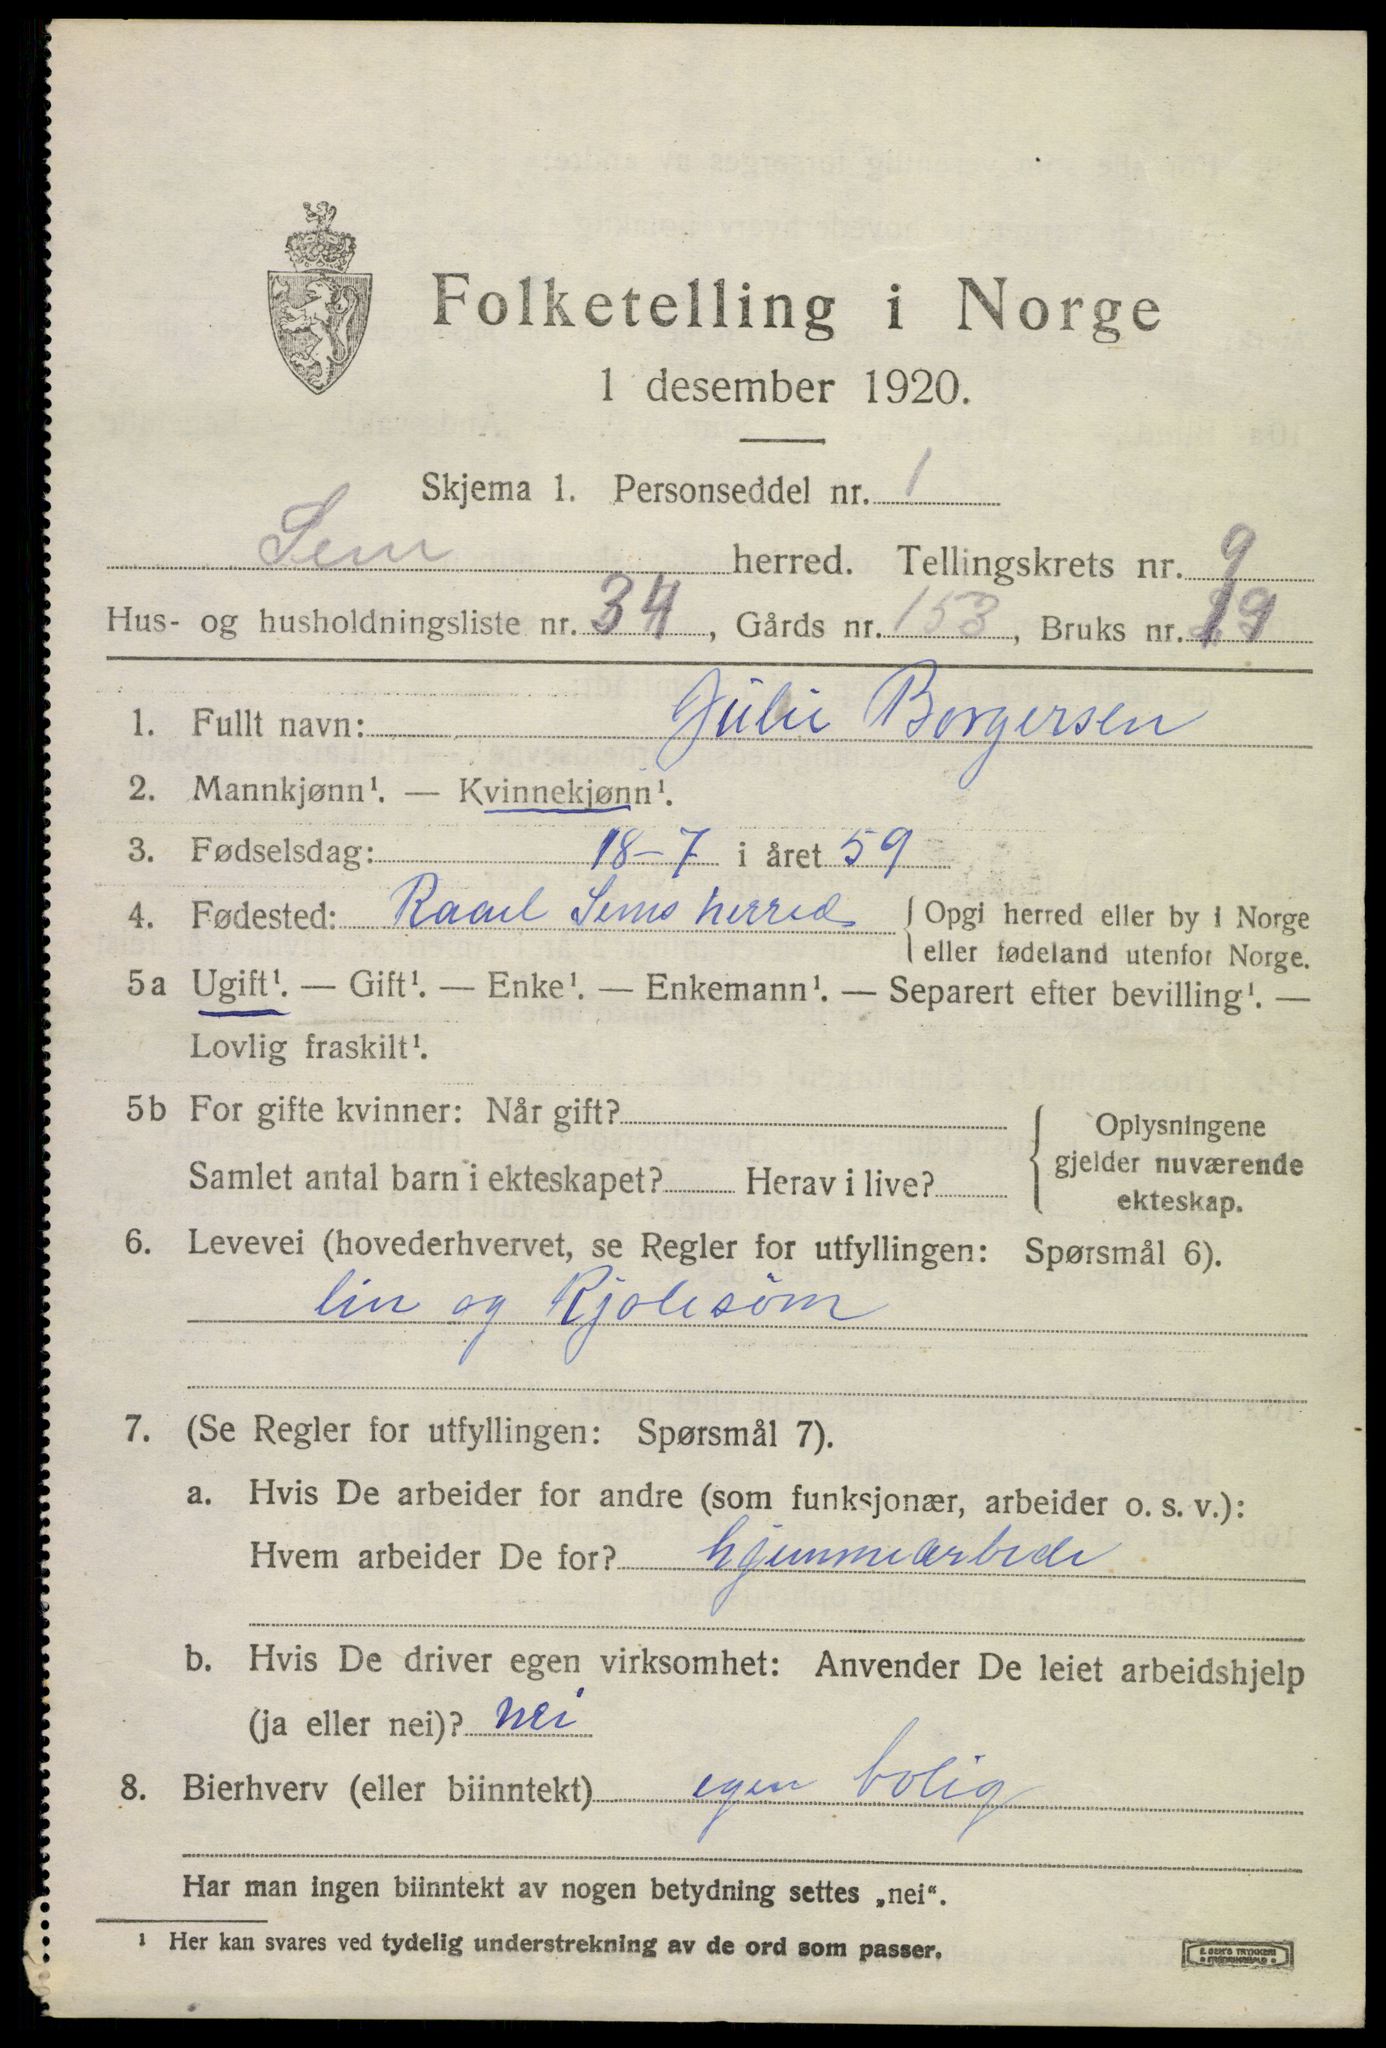 Folketelling i Norge
1 desember 1920.
Skjema 1. Personseddel nr. 1
Sem herred. Tellingskrets nr. 9
Hus- og husholdningsliste nr. 34, Gårds nr. 153, Bruks nr.
1. Fullt navn: Julie Borgersen
2. Mannkjønn¹. — Kvinnekjønn¹.
3. Fødselsdag: 18-7 i året 59
4. Fødested: Raael Sems herred { Opgi herred eller by i Norge
eller fødeland utenfor Norge.
5a Ugift¹. — Gift¹. — Enke¹. — Enkemann¹. — Separert efter bevilling¹. —
Lovlig fraskilt¹.
5b For gifte kvinner: Når gift?
Samlet antal barn i ekteskapet? Herav i live?
Oplysningene
gjelder nuværende
ekteskap.
6. Levevei (hovederhvervet, se Regler for utfyllingen: Spørsmål 6).
lin og Kjolesøm
7. (Se Regler for utfyllingen: Spørsmål 7).
a. Hvis De arbeider for andre (som funksjonær, arbeider o. s. v.):
Hvem arbeider De for? hjemmearbede
b. Hvis De driver egen virksomhet: Anvender De leiet arbeidshjelp
(ja eller nei)? nei
8. Bierhverv (eller biinntekt) egen bolig
Har man ingen biinntekt av nogen betydning settes „nei“.
¹ Her kan svares ved tydelig understrekning av de ord som passer.